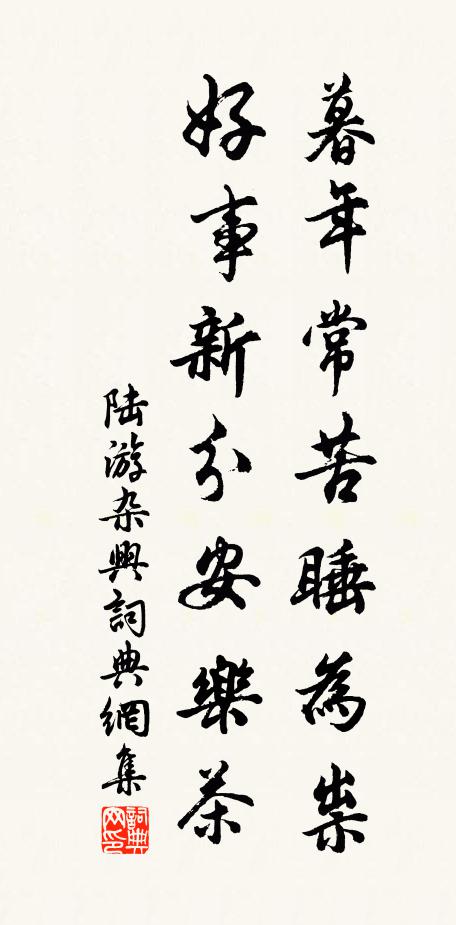 暮年常苦睡為祟
好事新分安樂茶
陆游杂興詞典網集
詞典网印